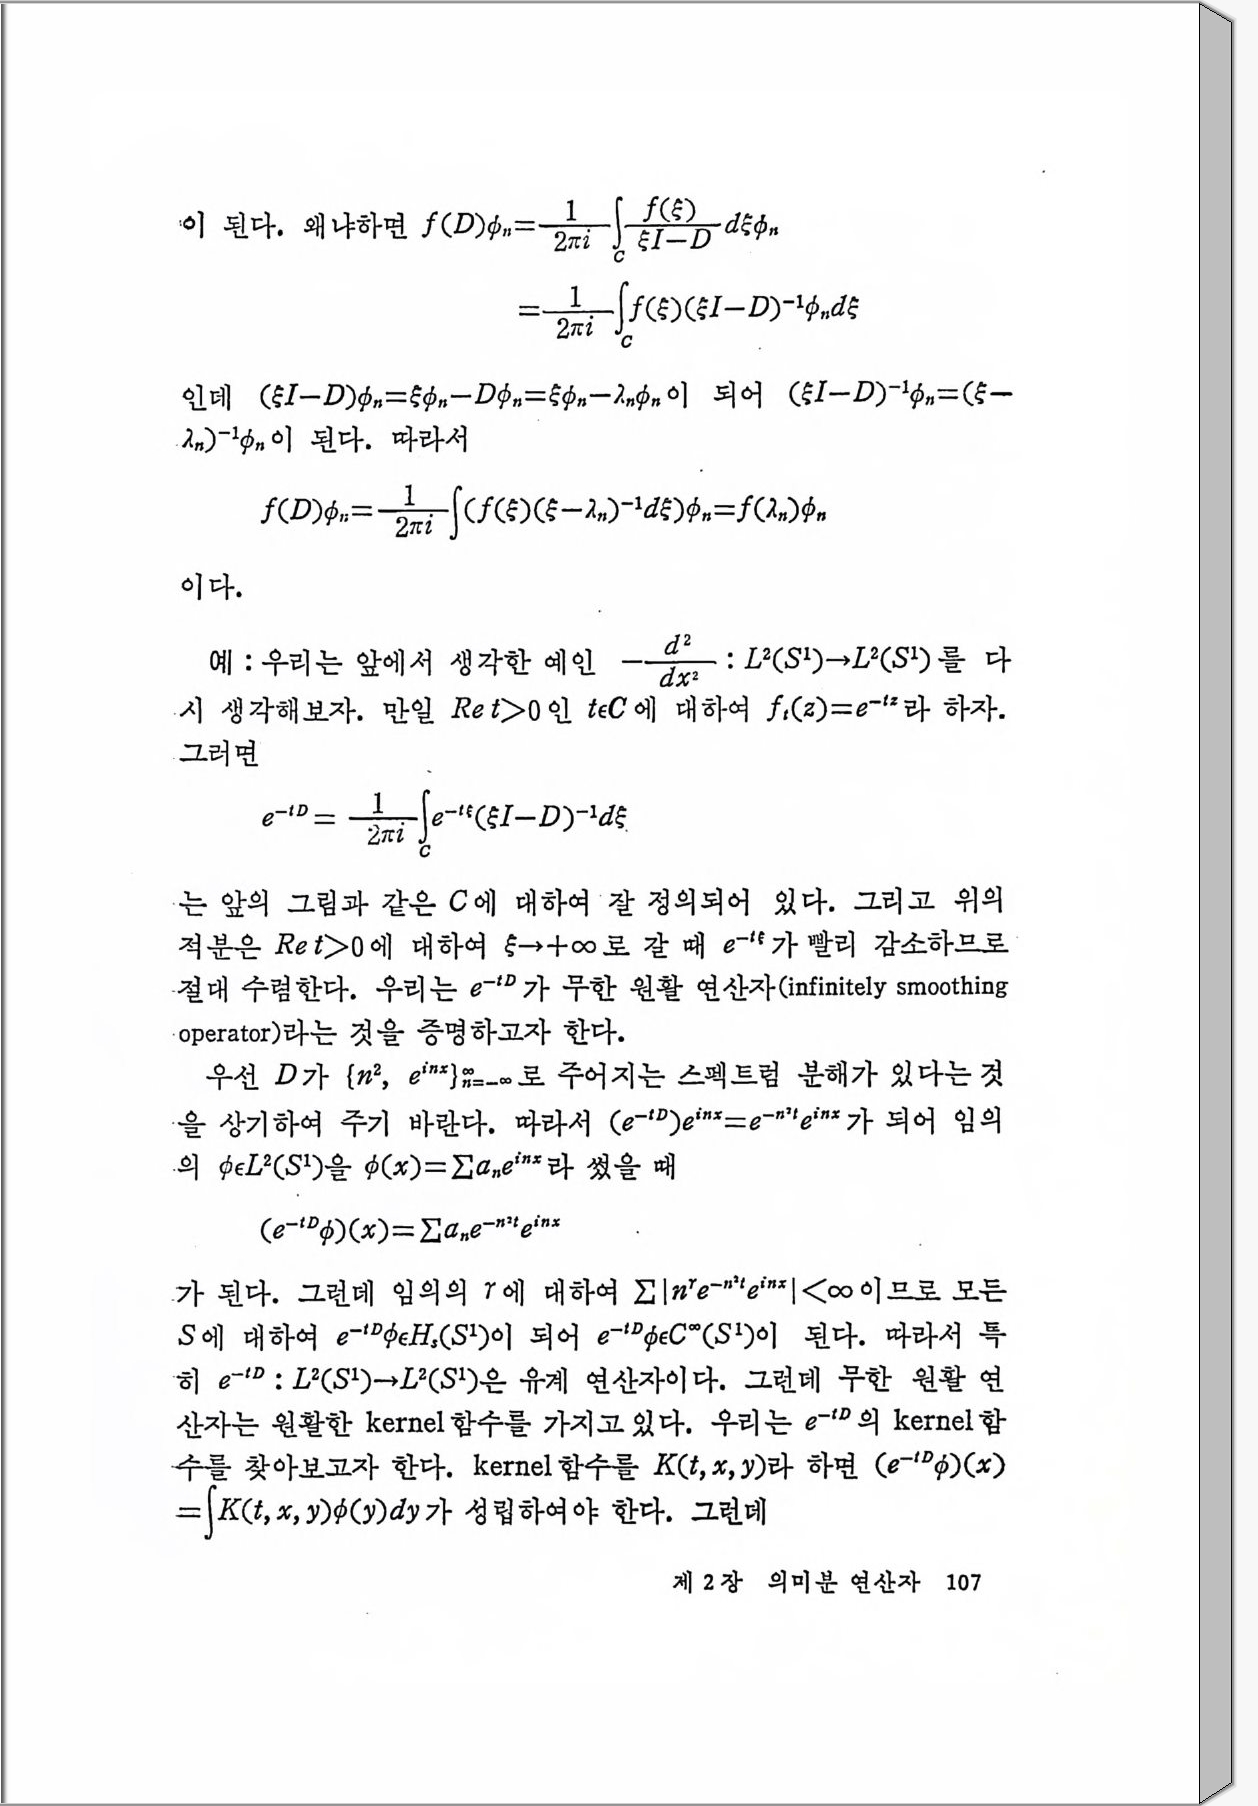 이 된다. 왜냐하면 f(D)φₙ = 1/2πi ∫_C f(ξ)/(ξI−D) dξφₙ
= 1/2πi ∫_C f(ξ)(ξI−D)⁻¹φₙdξ
인데 (ξI−D)φₙ=ξφₙ−Dφₙ=ξφₙ−λₙφₙ이 되어 (ξI−D)⁻¹φₙ=(ξ−
λₙ)⁻¹φₙ이 된다. 따라서
f(D)φₙ= 1/2πi ∫(f(ξ)(ξ−λₙ)⁻¹dξ)φₙ=f(λₙ)φₙ
이다.
예 : 우리는 앞에서 생각한 예인 −d²/dx² : L²(S¹)→L²(S¹)를 다
시 생각해보자. 만일 Re t>0인 tϵC에 대하여 fₜ(z)=e^{−tz}라 하자.
그러면
e^{−tD} = 1/2πi ∫_C e^{−tξ}(ξI−D)⁻¹dξ
는 앞의 그림과 같은 C에 대하여 잘 정의되어 있다. 그리고 위의
적분은 Re t>0에 대하여 ξ→+∞로 갈 때 e^{−tξ}가 빨리 감소하므로
절대 수렴한다. 우리는 e^{−tD}가 무한 원활 연산자(infinitely smoothing
operator)라는 것을 증명하고자 한다.
우선 D가 {n², e^{inx}}^∞_{n=−∞}로 주어지는 스펙트럼 분해가 있다는 것
을 상기하여 주기 바란다. 따라서 (e^{−tD})e^{inx}=e^{−n²t}e^{inx}가 되어 임의
의 φϵL²(S¹)을 φ(x)=∑aₙe^{inx}라 썼을 때
(e^{−tD}φ)(x)=∑aₙe^{−n²t}e^{inx}
가 된다. 그런데 임의의 r에 대하여 ∑|n^r e^{−n²t}e^{inx}|<∞이므로 모든
S에 대하여 e^{−tD}φϵH_s(S¹)이 되어 e^{−tD}φϵC^∞(S¹)이 된다. 따라서 특
히 e^{−tD} : L²(S¹)→L²(S¹)은 유계 연산자이다. 그런데 무한 원활 연
산자는 원활한 kernel함수를 가지고 있다. 우리는 e^{−tD}의 kernel함
수를 찾아보고자 한다. kernel함수를 K(t, x, y)라 하면 (e^{−tD}φ)(x)
=∫K(t, x, y)φ(y)dy가 성립하여야 한다. 그런데
제 2 장 의미분 연산자 107